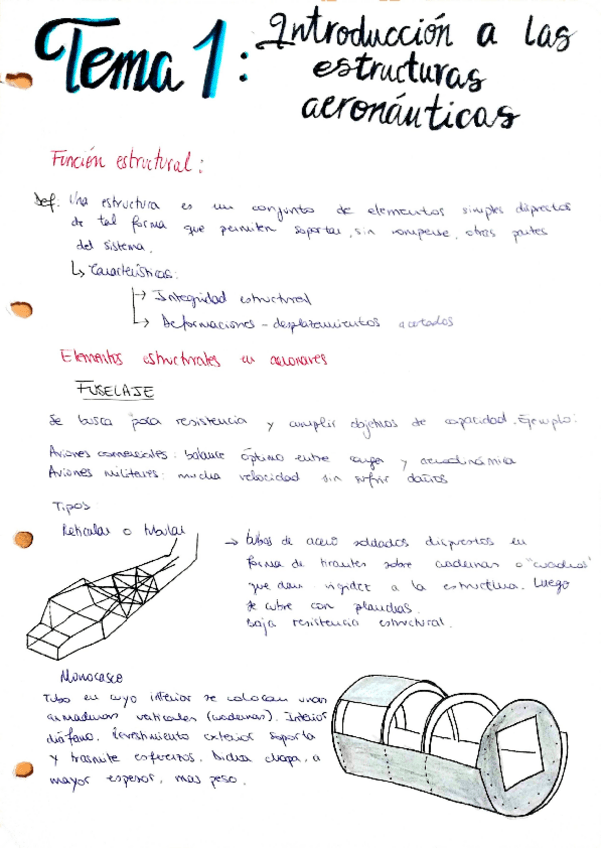 Tema 1: Introducción a las
estructuras
aeronáuticas
Función estructural:
Def: Una estructura es un conjunto de elementos simples dispuestos
de tal forma que permiten soportar, sin romperse, otras partes
del sistema.
↳ Características:
↳ Integridad estructural
↳ Deformaciones - desplazamientos acotados
Elementos estructurales en aeronaves
FUSELAJE
Se busca poca resistencia y cumplir objetivos de capacidad. Ejemplo:
Aviones comerciales: balance óptimo entre carga y aerodinámica
Aviones militares: mucha velocidad sin sufrir daños
Tipos:
Reticular o tubular
→ tubos de acero soldados dispuestos en
forma de tirantes sobre cuadernas o "cuadros"
que dan rigidez a la estructura. Luego
se cubre con planchas.
Baja resistencia estructural.
Monocasco
Tubo en cuyo interior se colocan unas
armaduras verticales (cuadernas). Interior
diáfano. Revestimiento exterior soporta
y trasmite esfuerzos. Dicha chapa, a
mayor espesor, mas peso.